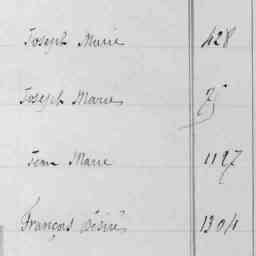 Joseph Marie 428
Joseph Marie
Jean Marie 1127
François Désiré 1304